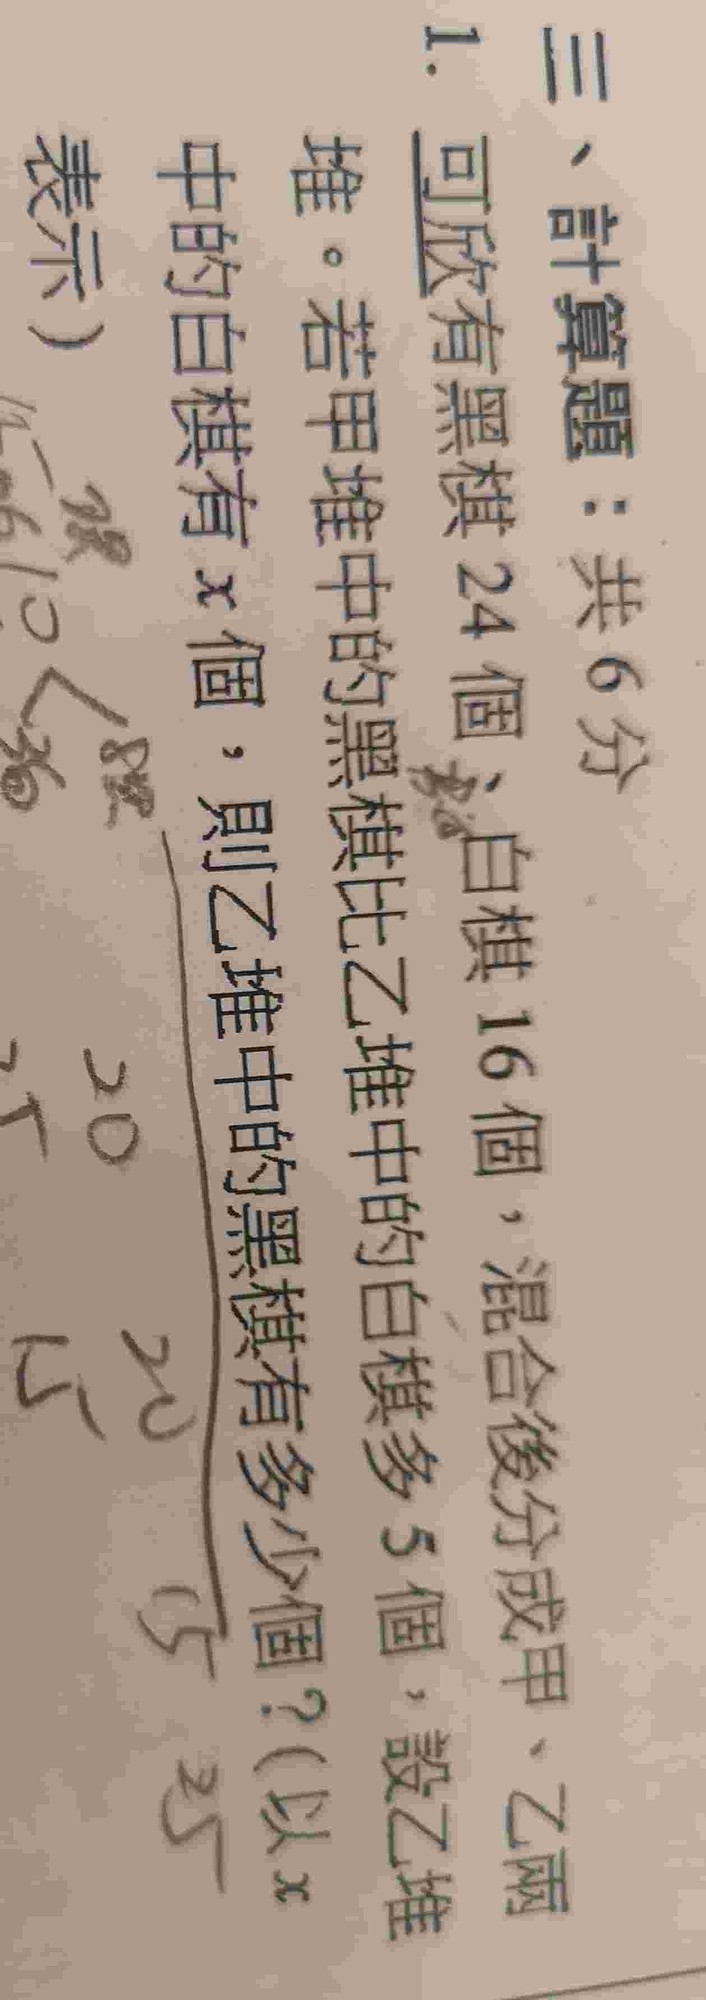 三、計算題：共6分
1. 可欣有黑棋24個、白棋16個，混合後分成甲、乙兩
堆。若甲堆中的黑棋比乙堆中的白棋多5個，設乙堆
中的白棋有x個，則乙堆中的黑棋有多少個？(以x
表示)
20 20 15 25
15